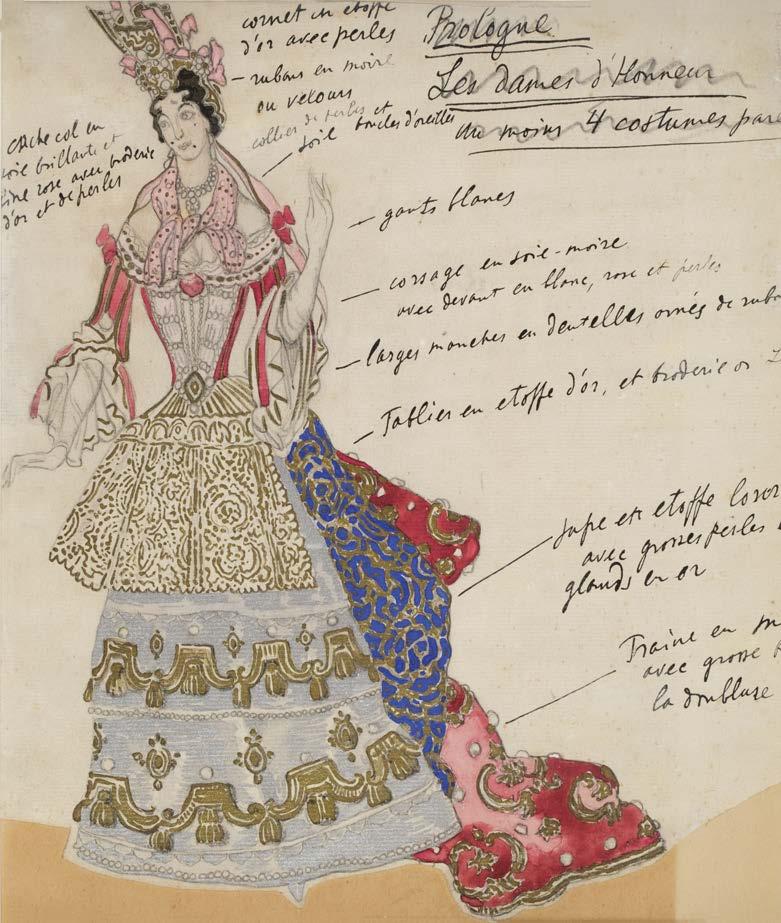 Prologue
Les dames d'Honneur
Au moins 4 costumes
cornet en etoffe
d'or avec perles
rubans en moire
ou velours
collier de perles et
boucles d'oreilles
soie
cache col en
soie brillante et
fine rose avec broderie
d'or et de perles
gants blancs
corsage en soie-moire
avec devant en blanc, rose et perles
larges manches en dentelles ornés de
Tablier en etoffe d'or, et broderie or
Jupe en etoffe
avec grosses perles
glands en or
Traine en
avec grosse
la doublure